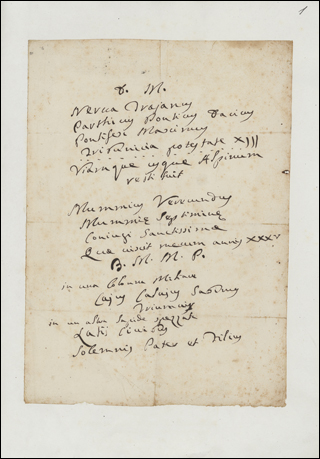 1
D. M.
Nerva Trajanus
Parthicus Ponticus Dacius
Pontifex Maximus
Tribunicia potestate XIII
Viamque usque Alpinum
restituit
Mummius Verecundus
Mummiæ Septiminæ
Coniugi Sanctissimæ
Quæ vixit mecum annis XXXV
B. M. M. P.
in una
Caius
in un altra
Latij
Solemnis Pater et